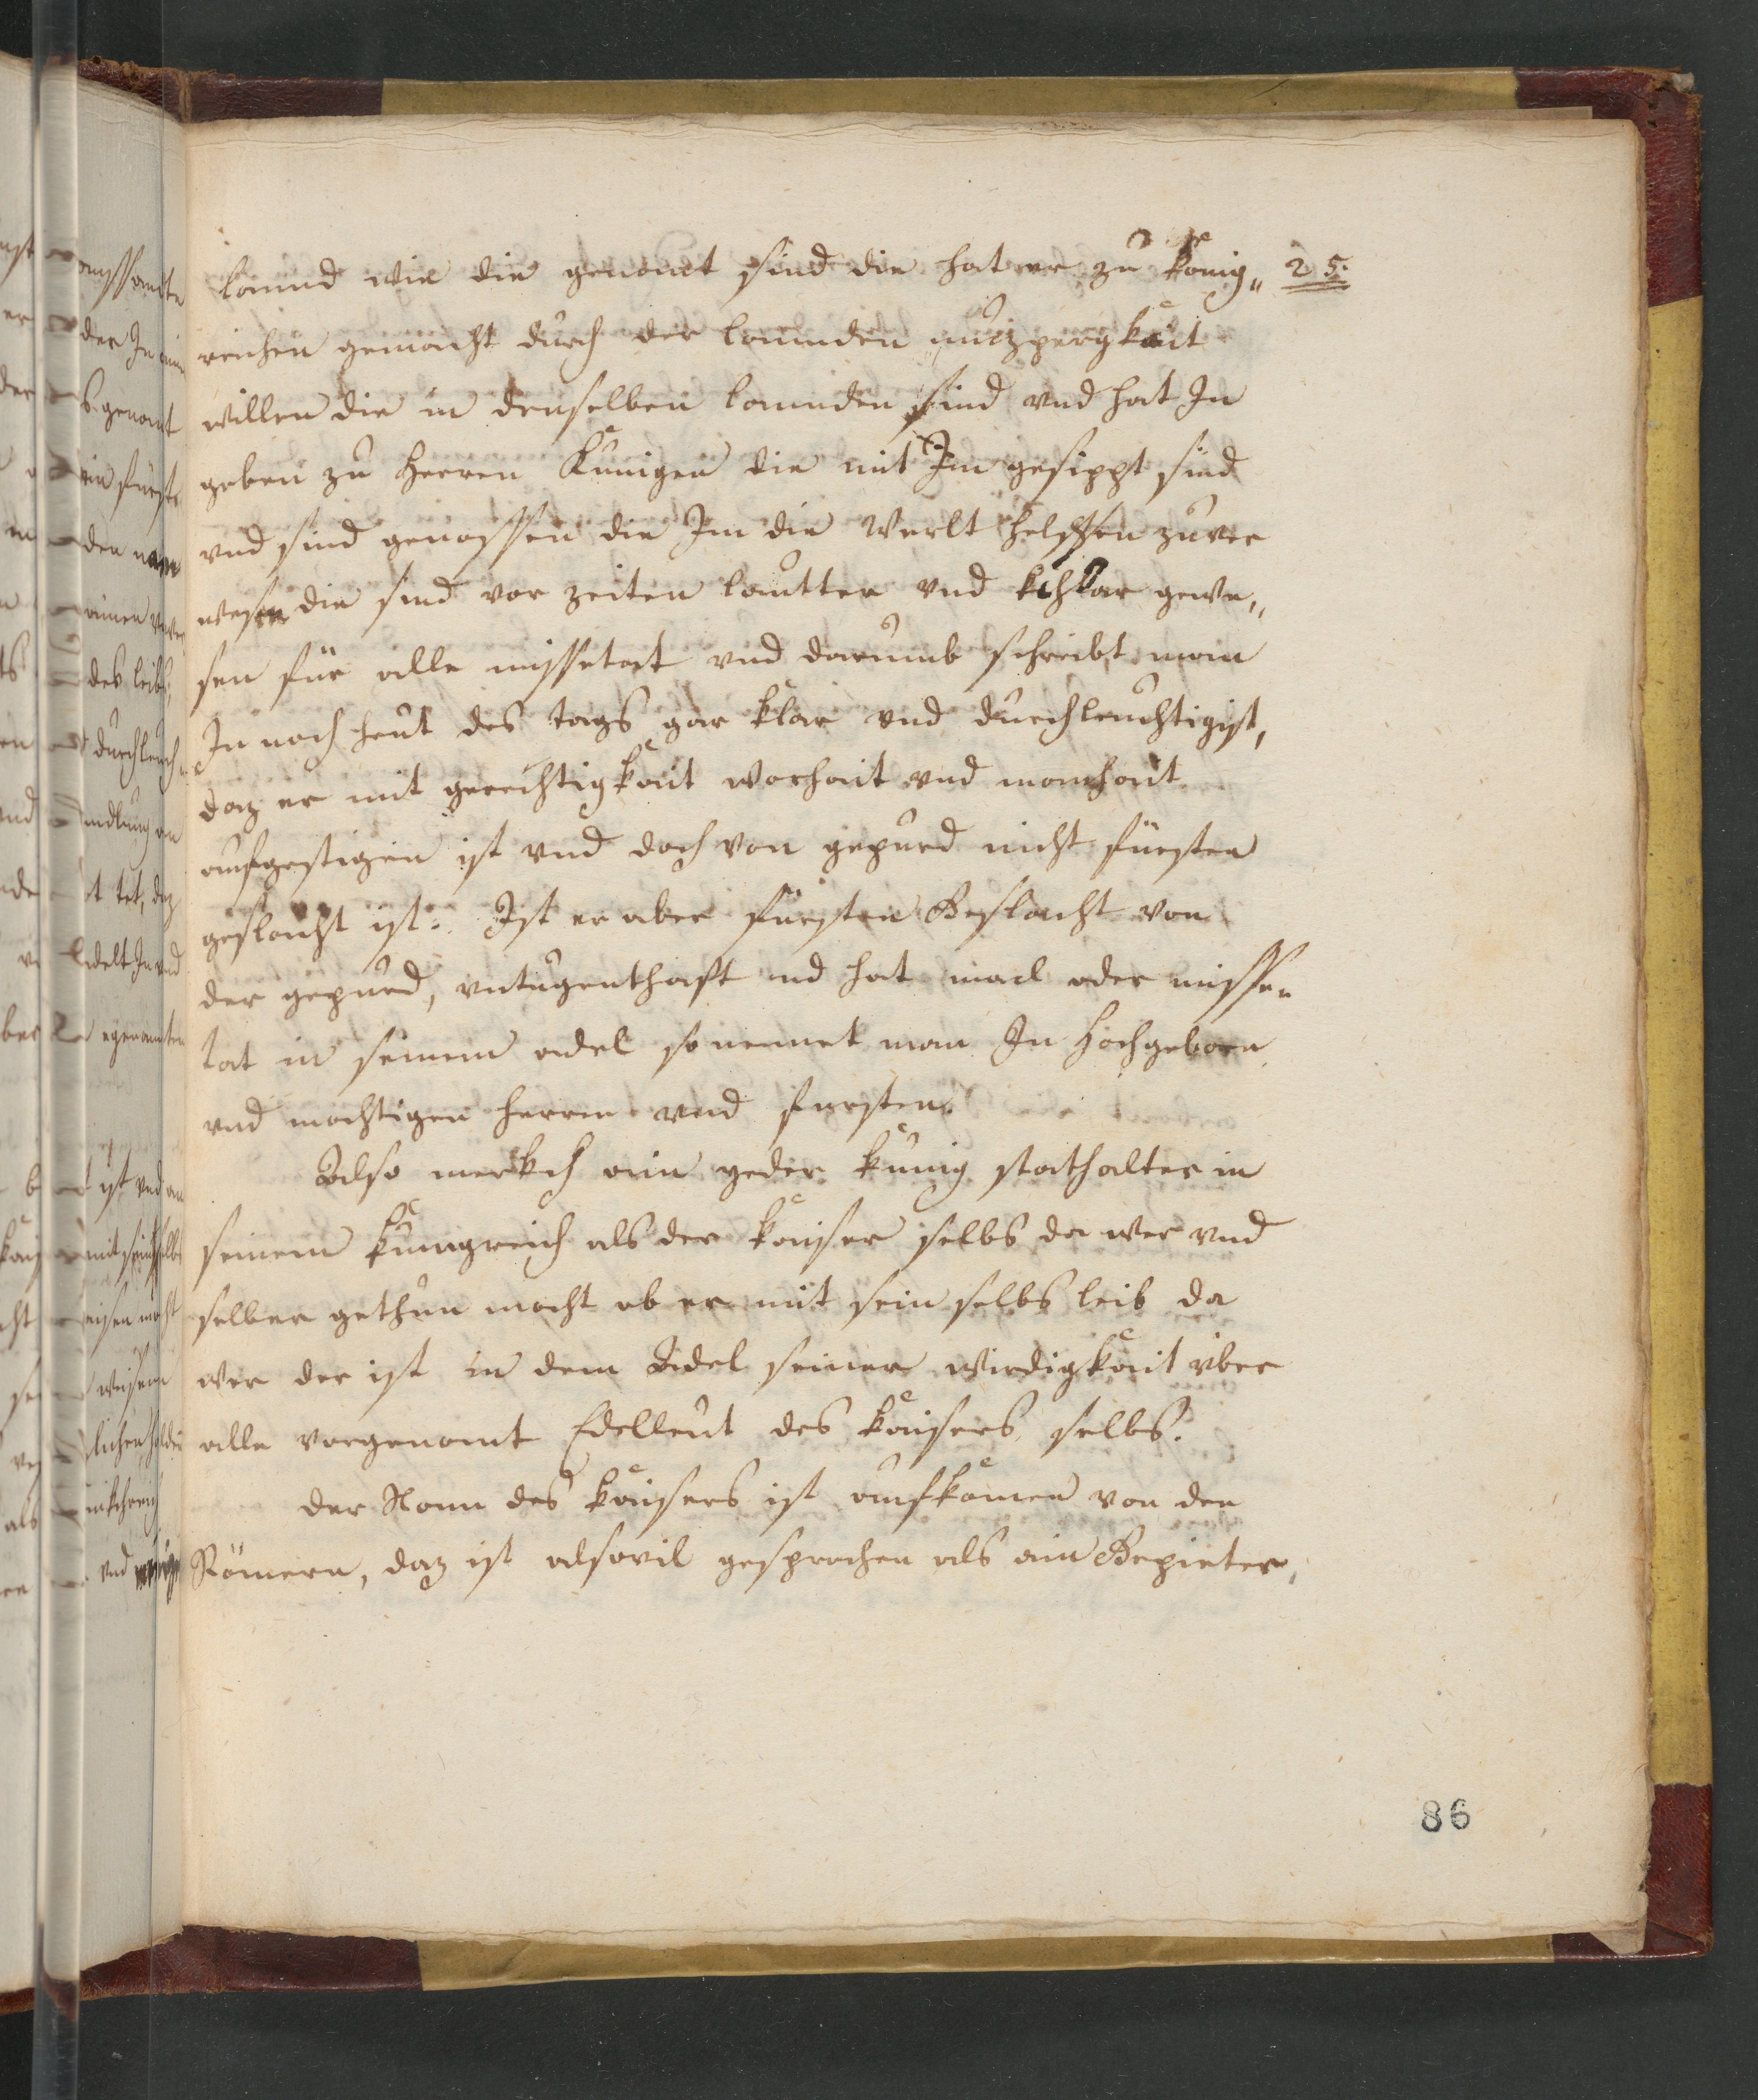 lannd wie die genannt sind die hat er zu König„ 25.
reichen gemacht durch der lannden nutzpergkait
willen die in denselben lannden sind vnd hat In
geben zu Herren Künigen die mit Im gesippt sind
vnd sind genossen die Im die Werlt helffen zuver
wesen die sind vor zeiten lautter vnd khlar gewe„
sen für alle missetat vnd darumb schreibt man
In noch heut des tags gar klar vnd durchleuchtigist,
daz er mit gerechtigkait warhait vnd manhait
aufgestigen ist vnd doch von gepurd nicht fürsten
geslächt ist. Ist er aber fürsten Geslächt von
der gepurd, vntugenthaft vnd hat mail oder misse„
tat in seinem adel so nennet man In Hochgeborn
vnd mächtigen herren vnd fursten.
Also merkch ain yeder künig stathalter in
seinem künigreich als der kaiser selbs da wer vnd
selber gethun möcht ob er mit sein selbs leib da
wer der ist in dem Adel seiner wirdigkait vber
alle vorgenant Edelleut des kaisers selbs.
Der Nam des kaisers ist aufkomen von den
Römern, daz ist alsovil gesprochen als ain Gepieter,
86